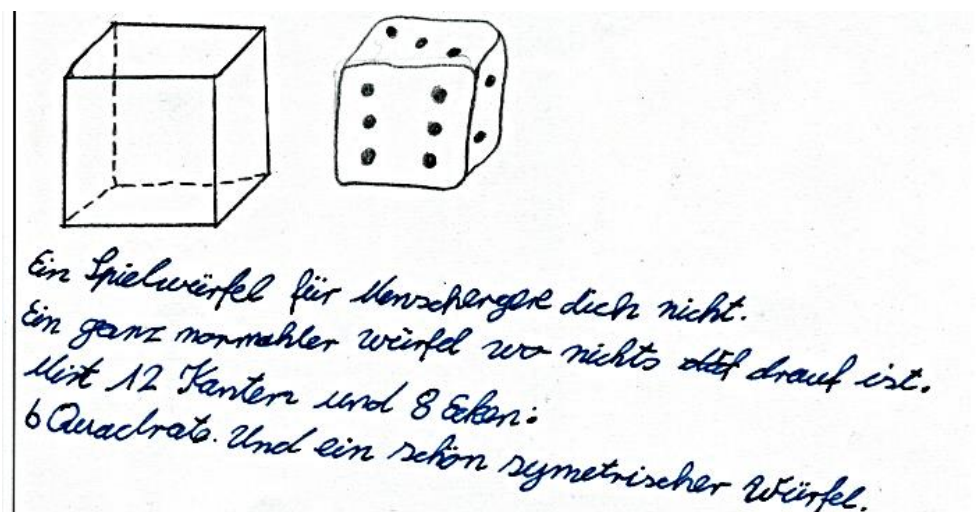 Ein Spielwürfel für Menschergere dich nicht.
Ein ganz normahler würfel wo nichts drauf ist.
Mit 12 Kanten und 8 Ecken:
6 Quadrate. Und ein schön symetrischer Würfel.